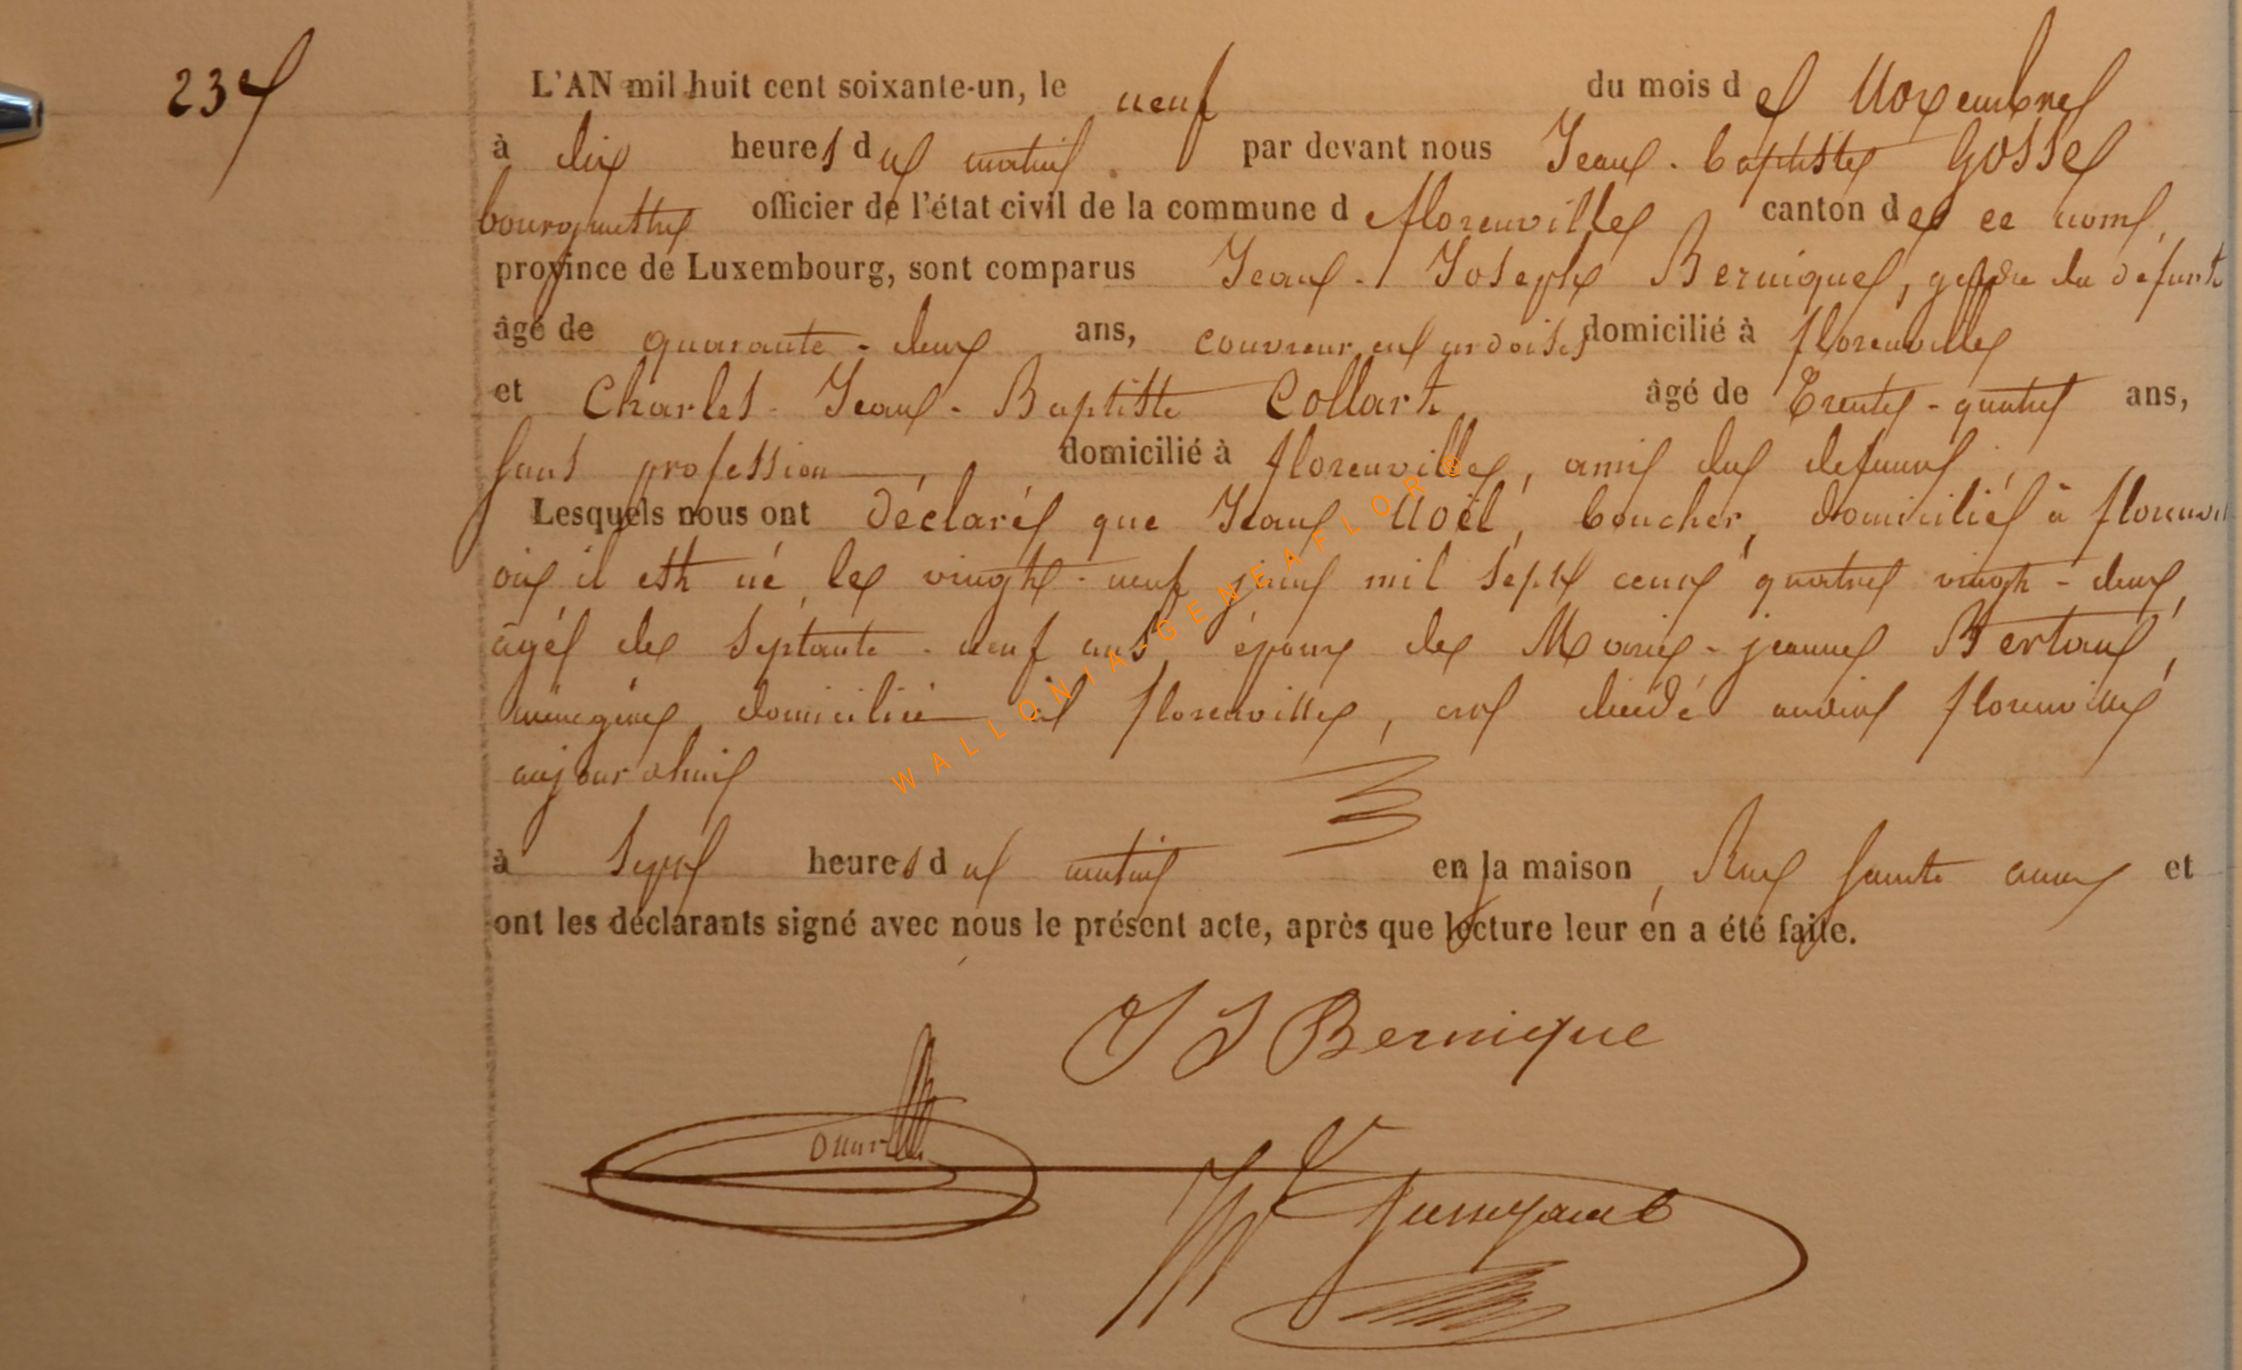 237
L'AN mil huit cent soixante-un, le neuf du mois de Novembre
à dix heures du matin. par devant nous Jean-baptiste Gosse
bourgmestre officier de l'état civil de la commune d florenville canton de ce nom,
province de Luxembourg, sont comparus Jean-Joseph Bernique, gendre du défunt
âgé de quarante-deux ans, couvreur en ardoises domicilié à florenville
et Charles-Jean-Baptiste Collart âgé de Trente-quatre ans,
sans profession, domicilié à florenville, ami du defunt
Lesquels nous ont déclaré que Jean Noël, boucher, domicilié à florenvil
où il est né, le vingt-neuf juin mil sept cent quatre vingt-deux,
âgé de septante-neuf ans, époux de Marie-jeanne Bertaux,
ménagère, domiciliée à florenville, est décédé audit florenville
aujourdhui
à sept heures du matin en la maison, Rue sainte anne et
ont les déclarants signé avec nous le présent acte, après que lecture leur en a été faite.
WALLONIA-GENEAFLOR®
J J Bernique